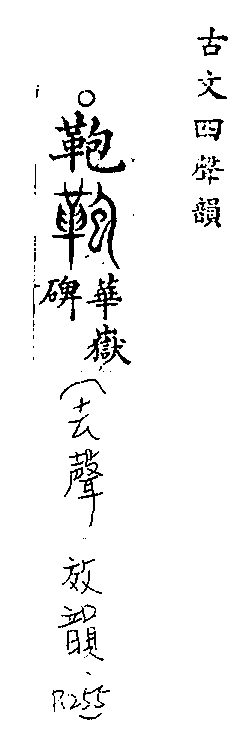 古文四聲韻
○鞄
華嶽
碑
(去聲) 效韻 P.255